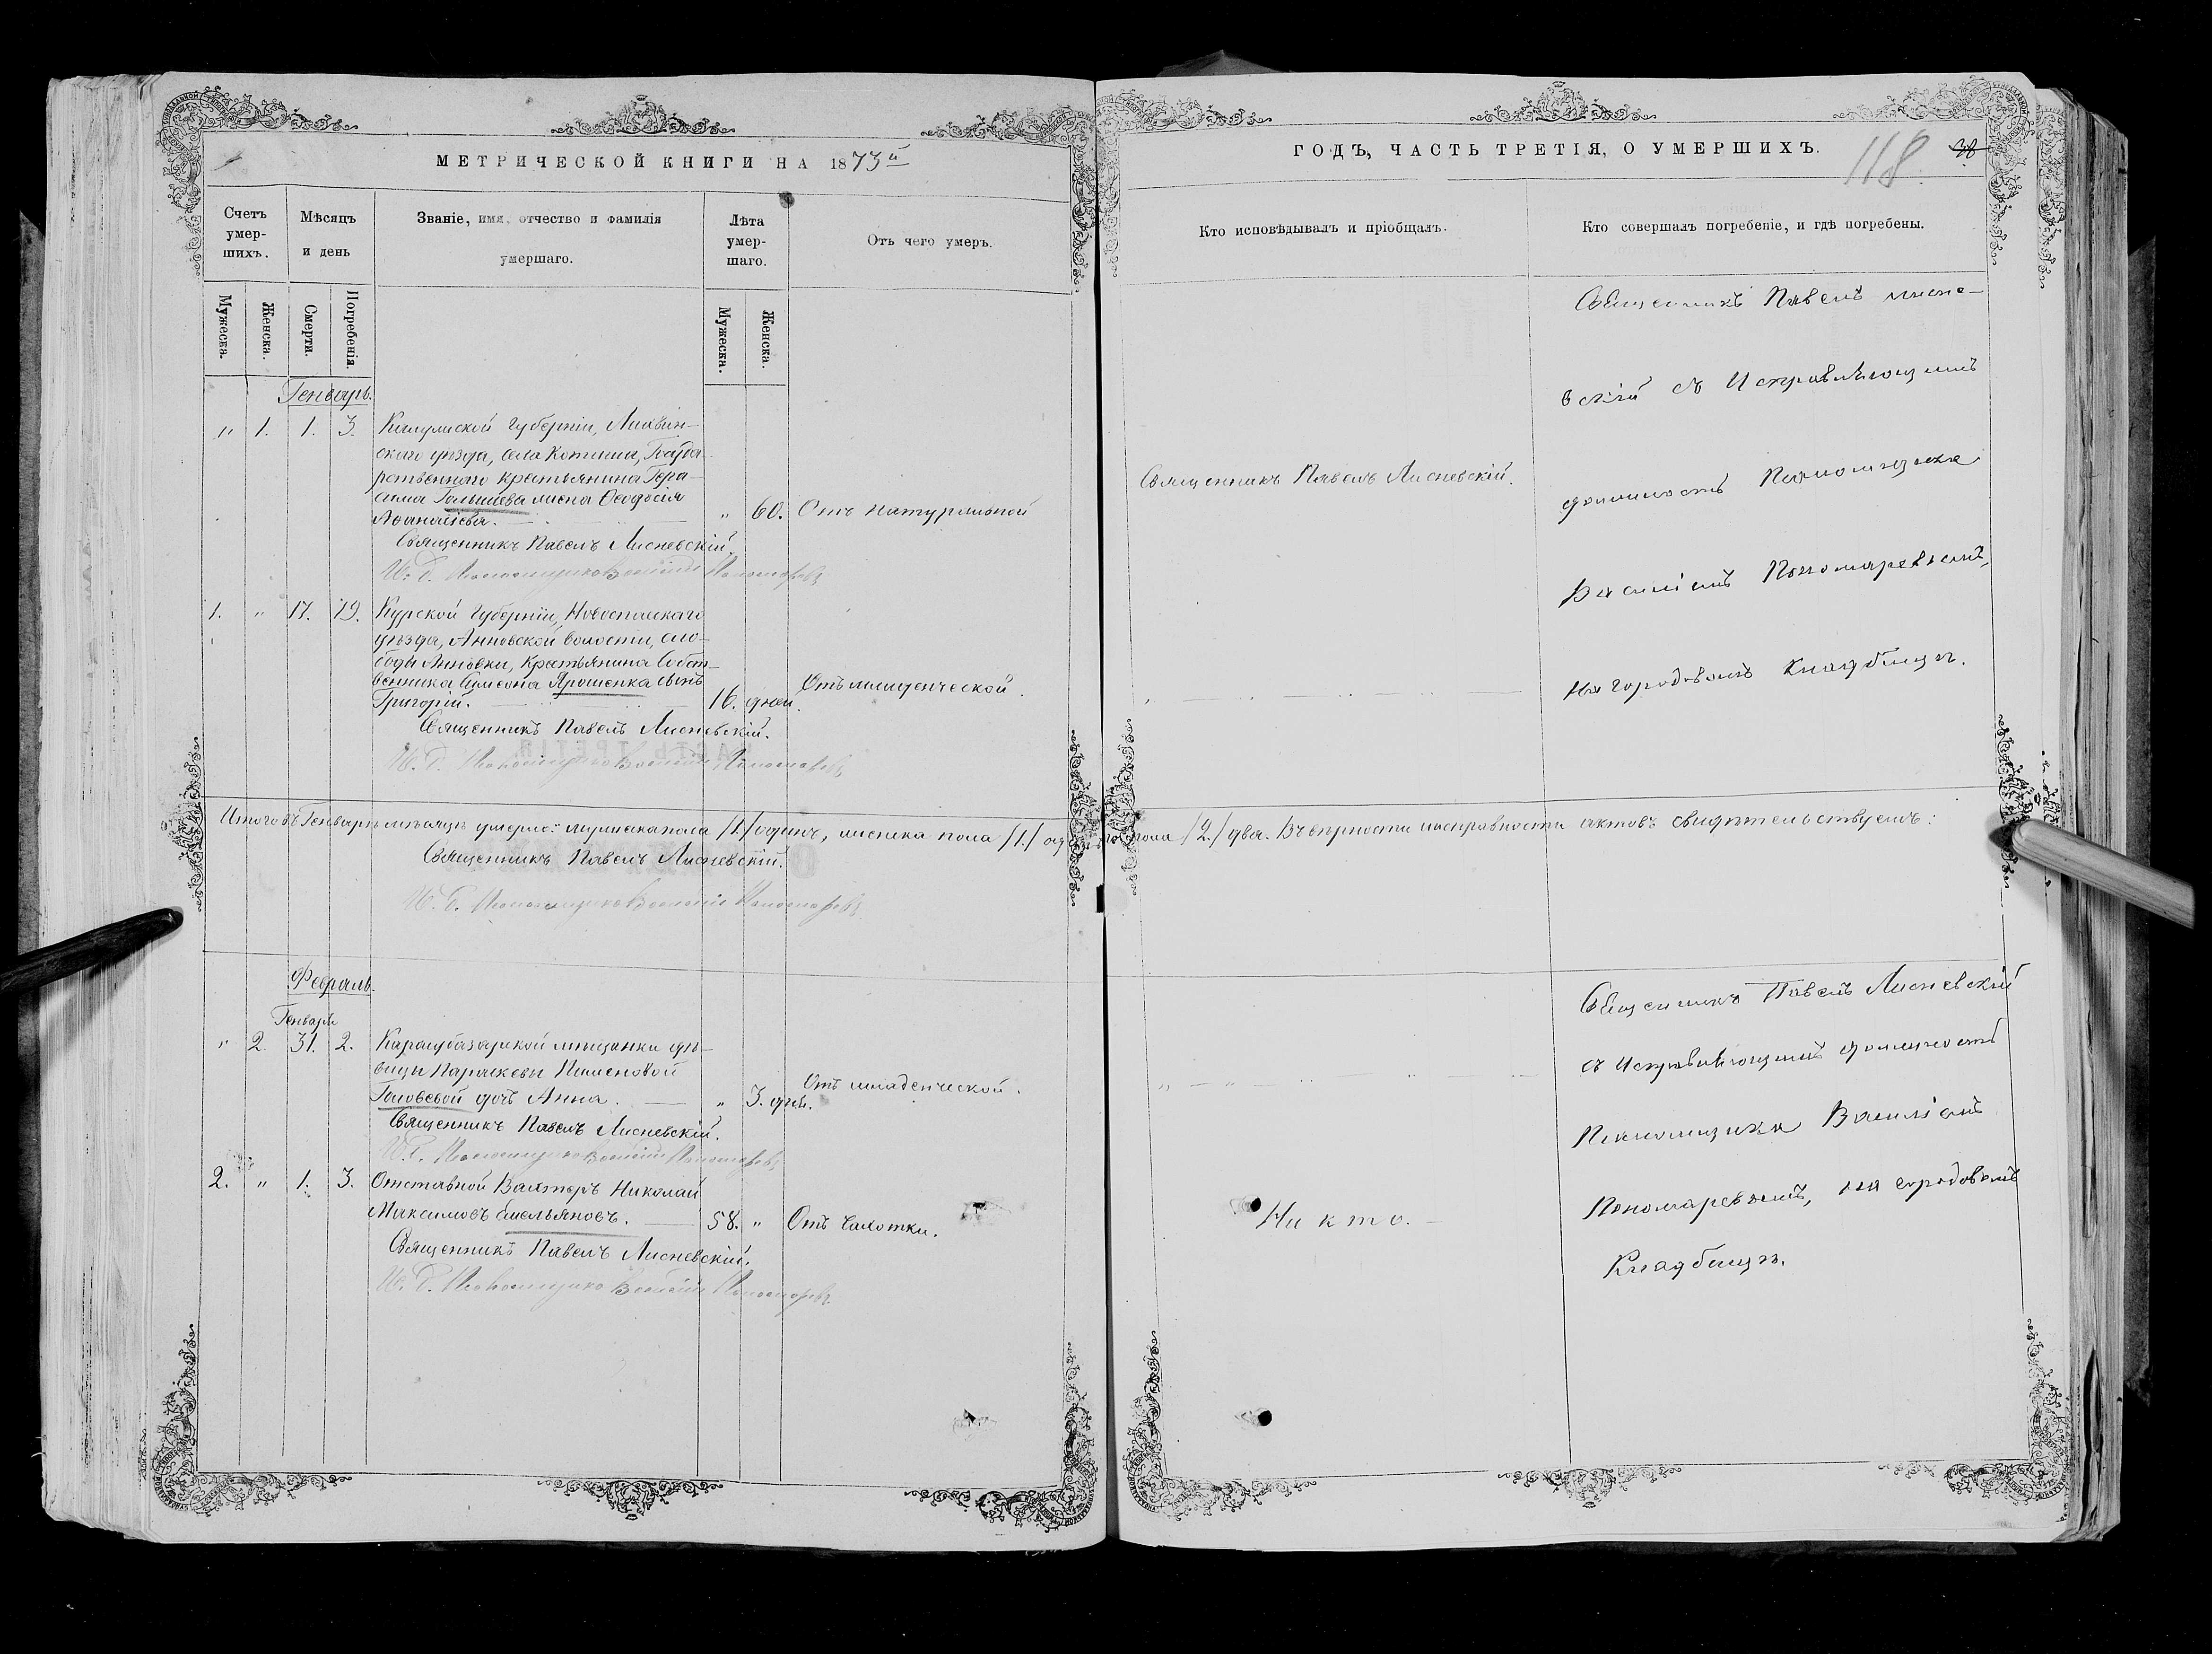 МЕТРИЧЕСКОЙ КНИГИ НА 1873й
Счетъ умер-шихъ.
Мѣсяцъ и день
Званіе, имя, отчество и фамилія умершаго.
Лѣта умер-шаго.
Отъ чего умеръ.
Мужеска.
Женска.
Смерти.
Погребенія.
Мужеска.
Женска.
Генварь.
„ 1. 1. 3. Калужской Губерніи, Лихвин-
скаго уѣзда, села Госуда-
рственнаго крестьянина Гера-
сима Голышева жена Ѳеодосія
Аѳанасіева. „ 60. Отъ натуральной
Священникъ Павелъ Лисневскій.
И. д. Псаломщика Василій Пономаревъ
1. „ 17. 19. Курской Губерніи, Новооскольскаго
уѣзда, Анновской волости, сло-
боды Анновки, Крестьянина Собст-
венника Симеона Ярошенка сынъ
Григорій. 16. дней. Отъ младенческой.
Священникъ Павелъ Лисневскій.
И. д. Псаломщика Василій Пономаревъ
Итого въ Генварѣ мѣсяцѣ умерло: мужеска пола /1./ одинъ, женска пола /1./ пола /2./ два. Въ вѣрности и исправности актовъ свидѣтельствуемъ:
Священникъ Павелъ Лисневскій.
И. д. Псаломщика Василій Пономаревъ
Февраль.
Генваря
„ 2. 31. 2. Карасубазарской мѣщанки дѣ-
вицы Параскевы Пименовой
дочь Анна. „ 3. дня. Отъ младенческой.
Священникъ Павелъ Лисневскій.
И. д. Псаломщика Василій Пономаревъ
2. „ 1. 3. Отставной Вахтеръ Николай
Максимовъ Емельяновъ. 58. „ Отъ чахотки.
Священникъ Павелъ Лисневскій.
И. д. Псаломщика Василій Пономаревъ
ГОДЪ, ЧАСТЬ ТРЕТІЯ, О УМЕРШИХЪ.
118
Кто исповѣдывалъ и пріобщалъ.
Кто совершалъ погребеніе, и гдѣ погребены.
Священникъ Павелъ Лисневскій.
Священникъ Павелъ Лисне-
вскій съ Исправляющимъ
должность Псаломщика
Василіемъ Пономаревымъ,
на городовомъ Кладбищѣ.
Священникъ Павелъ Лисневскій
съ Исправляющимъ должность
Псаломщика Василіемъ
Пономаревымъ, на городовомъ
Кладбищѣ.
Никто.